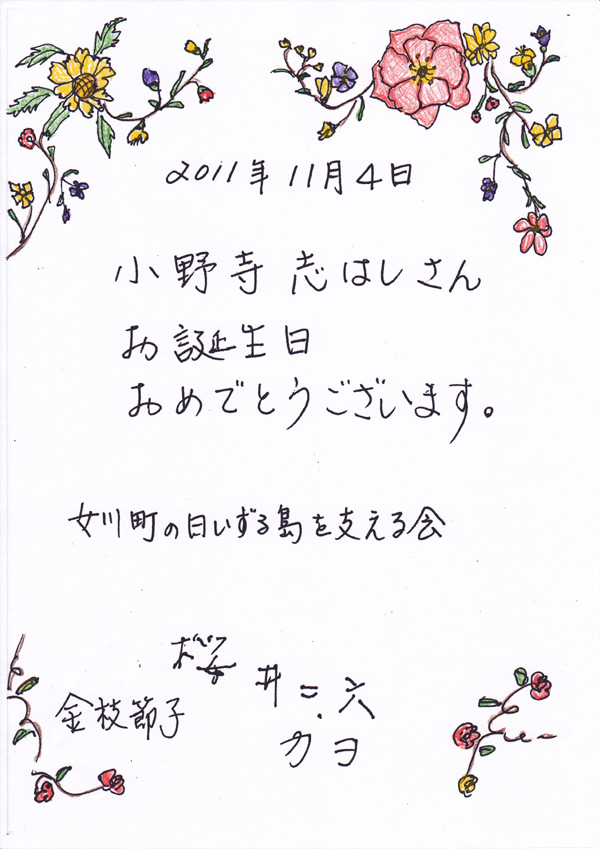 2011年11月4日
小野寺志はしさん
お誕生日
おめでとうございます。
女川町の日いずる島を支える会
金枝節子
桜井二六
カヨ